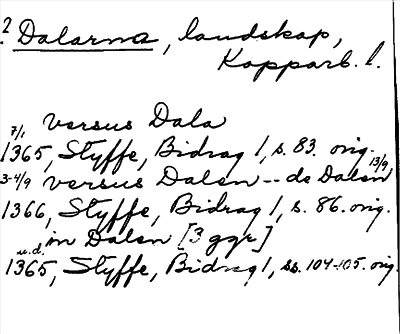 ? Dalarna, landskap,
Kopparb. l.
7/1 versus Dala
1365, Styffe, Bidrag 1, s. 83. orig.
3-4/9 versus Dalen -- de Dalen 13/9
1366, Styffe, Bidrag 1, s. 86. orig.
in Dalen [3 ggr]
u.d. 1365, Styffe, Bidrag 1, ss. 104-105. orig.